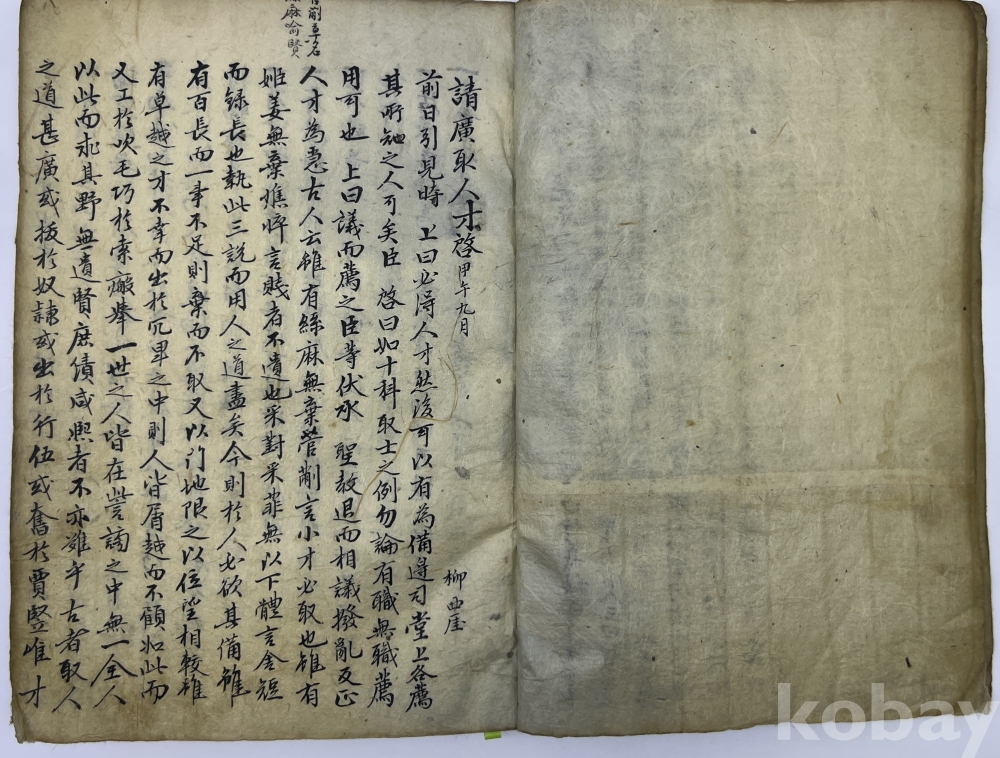 蒯草名
麻喻賢
請廣取人才啓 甲午九月 柳西厓
前日引見時 上曰必得人才然後可以有為備邊司堂上各薦
其所知之人可矣臣 啓曰如十科取士之例勿論有職無職薦
用可也 上曰議而薦之臣等伏承 聖敎退而相議撥亂反正
人才為急古人云雖有絲麻無棄菅蒯言小才必取也雖有
姬姜無棄憔悴言賤者不遺也采葑采菲無以下體言舍短
而錄長也執此三說而用人之道盡矣今則於人必欲其備雖
有百長而一事不足則棄而不取又以門地限之以位望相較雖
有卓越之才不幸而出於冗卑之中則人皆屑越而不顧如此而
又工於吹毛巧於索瘢擧一世之人皆在訾謫之中無一全人
以此而求其野無遺賢庶績咸熙者不亦難乎古者取人
之道甚廣或拔於奴隷或出於行伍或奮於賈竪唯才
kobay